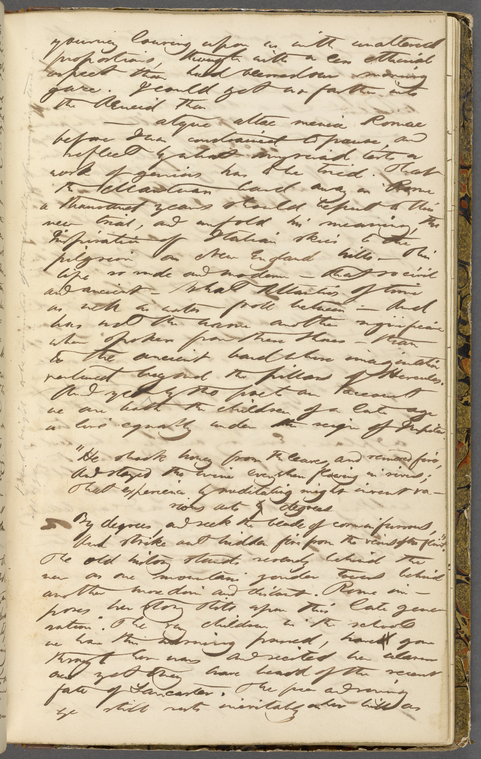 lowering upon us with unaltered
proportions, though with a less ethereal
aspect than had our morning
gaze. I could get no farther into
the Aeneid than
— atque altae moenia Romae
before I was constrained to pause, and
reflect by what myriad tests a
work of genius has to be tried. That
the Mantuan bard away in Rome
a thousand years should to this
new trial, and unfold his meaning, the
Inspiration of Italian skies to the
pilgrim on New England hills — This
life so rude and modern — that so civil
and ancient — What of time
as well as water between — And
has not the name another significance
when spoken from these shores — than
to the ancient bard whose imagination
ventured beyond the pillars of Hercules.
And yet by the poet's own account
we are both the children of a late age
and live equally under the reign of Jupiter
"He shook honey from the leaves, and removed fire,
And stayed the wine everywhere flowing in rivers;
That experience by meditating might invent va-
rious arts by degrees
By degrees, and seek the blade of corn in furrows,
And strike out hidden fire from the veins of the flint."
The old history stands serenely behind the
new as one mountain yonder towers behind
another more dim and distant. Rome im-
poses her story still upon this "late gene-
ration". The very children in the school
we have this morning passed, have gone
through her wars and recited her alarms
and yet they have heard of the recent
fate of Lancaster. The free and roving
eye still rests inevitably on her hills as